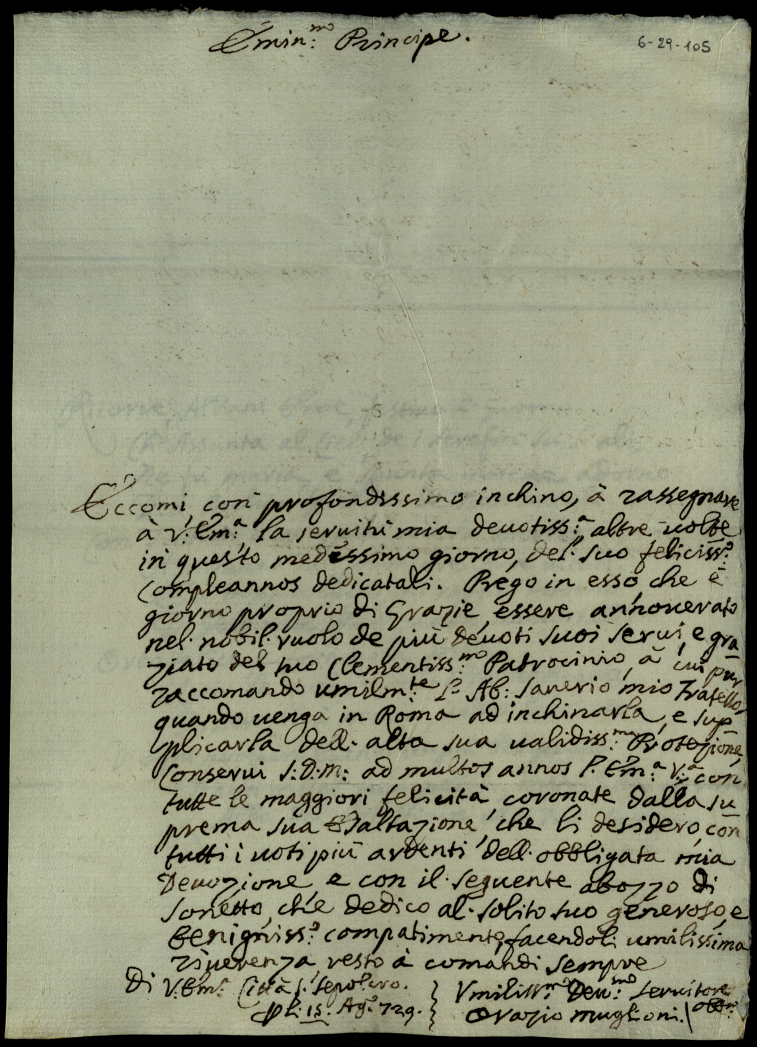 Emin:mo Principe.
6-29-105
Eccomi con profondissimo inchino, à rassegnare
à V: Em:a la servitù mia devotiss:a altre volte
in questo medessimo giorno, del suo feliciss:o
Compleannos dedicatali. Prego in esso che è
giorno proprio di Grazie essere annoverato
nel nobil ruolo de più devoti suoi servi, e gra
ziato del suo Clementiss:mo Patrocinio, à cui pur
raccomando umilm:te l'Ab: Saverio mio Fratello,
quando venga in Roma ad inchinarla, e sup
plicarla dell'alta sua validiss:ma Protezione,
Conservi S: D: M: ad multos annos l'Em:a V:a con
tutte le maggiori felicità, coronate dalla su
prema sua Esaltazione, che li desidero, con
tutti i voti più ardenti dell'obbligata mia
Devozione, e con il seguente abozzo di
Sonetto, che dedico al solito suo generoso, e
benigniss:o compatimento, facendoli umilissima
riverenza resto à comandi sempre
Di V: Em:a Città S: Sepolcro. } Umiliss:mo Dev:mo Servitore
li: 15: Ag:o 729. } Orazio Muglioni. obb:mo